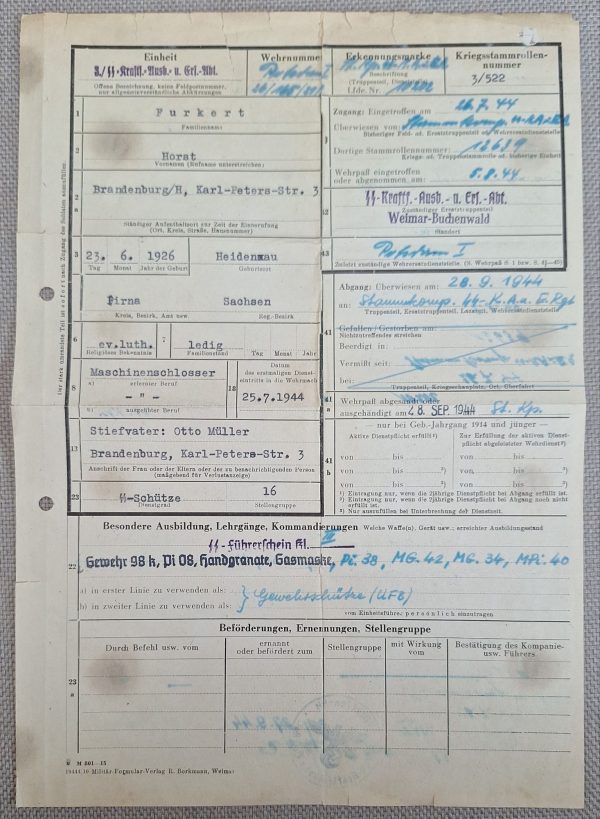 Einheit
3./SS-Kraftf.-Ausb.- u. Ers.-Abt.
Offene Bezeichnung, keine Feldpostnummer,
nur allgemeinverständliche Abkürzungen
Wehrnummer
Potsdam I
Erkennungsmarke
Beschriftung
(Truppenteil, Dienststelle)
Lfde. Nr.
Kriegsstammrollen-
nummer
3/522
Der stark umrandete Teil ist sofort nach Zugang des Soldaten auszufüllen
1
Furkert
Familienname
Horst
Vornamen (Rufname unterstreichen)
2
Brandenburg/H, Karl-Peters-Str. 3
Ständiger Aufenthaltsort zur Zeit der Einberufung
(Ort, Kreis, Straße, Hausnummer)
3
23. 6. 1926
Tag Monat Jahr der Geburt
Heidenau
Geburtsort
Pirna Sachsen
Kreis, Bezirk, Amt usw. Reg.-Bezirk
6
ev.luth.
Religiöses Bekenntnis
7
ledig
Familienstand
Tag Monat Jahr
8
Maschinenschlosser
a) erlernter Beruf
- " -
b) ausgeübter Beruf
18
Datum
des erstmaligen Dienst-
eintritts in die Wehrmacht
25.7.1944
13
Stiefvater: Otto Müller
Brandenburg, Karl-Peters-Str. 3
Anschrift der Frau oder der Eltern oder des zu benachrichtigenden Person
(maßgebend für Verlustanzeige)
23
SS-Schütze
Dienstgrad
16
Stellengruppe
Zugang: Eingetroffen am 26.7.44
Überwiesen von:
Bisheriger Feld- od. Ersatztruppenteil od. Wehrersatzdienststelle
Dortige Stammrollennummer: 12639
Kriegs- od. Truppenstammrolle od. bisheriger Einheit
Wehrpaß eingetroffen
oder abgenommen am: 5.8.44
12
SS-Kraftf.-Ausb.- u. Ers.-Abt.
Zuständiger Ersatztruppenteil
Weimar-Buchenwald
Standort
43
Potsdam I
Zuletzt zuständige Wehrersatzdienststelle.
Abgang: Überwiesen am: 28.9.1944
an: Stammkomp. SS-K.A.u.E.Rgt
Truppenteil, Ersatztruppenteil, Lazarett, Wehrersatzdienststelle
41
Gefallen / Gestorben am:
Nichtzutreffendes streichen
Beerdigt in:
Vermißt seit:
bei:
Truppenteil, Kriegsschauplatz, Ort, Überfahrt
41
a
Wehrpaß abgesandt oder
ausgehändigt am 28. SEP. 1944 St. Kp.
— nur bei Geb.-Jahrgang 1914 und jünger —
Aktive Dienstpflicht erfüllt¹)
Zur Erfüllung der aktiven Dienst-
pflicht abgeleisteter Wehrdienst³)
41
b
von bis ²) von bis ²)
von bis ²) von bis ²)
von bis ²) von bis ²)
¹) Eintragung nur, wenn die 2jährige Dienstpflicht bei Abgang erfüllt ist.
²) Eintragung nur, wenn die 2jährige Dienstpflicht bei Abgang noch nicht
erfüllt ist.
³) Nur auszufüllen bei Unterbrechung der Dienstzeit.
Besondere Ausbildung, Lehrgänge, Kommandierungen Welche Waffe(n), Gerät usw.; erreichter Ausbildungsstand
SS-Führerschein Kl. III
22
Gewehr 98 k, Pi 08, Handgranate, Gasmaske, Pi. 38, MG. 42, MG. 34, MPi. 40
a) in erster Linie zu verwenden als:
b) in zweiter Linie zu verwenden als:
} Gewehrschütze (UFB)
vom Einheitsführer persönlich einzutragen
Beförderungen, Ernennungen, Stellengruppe
Durch Befehl usw. vom
ernannt
oder befördert zum
Stellengruppe
mit Wirkung
vom
Bestätigung des Kompanie-
usw. Führers
23
a
M 801-15
19444 10 Militär-Formular-Verlag R. Borkmann, Weimar